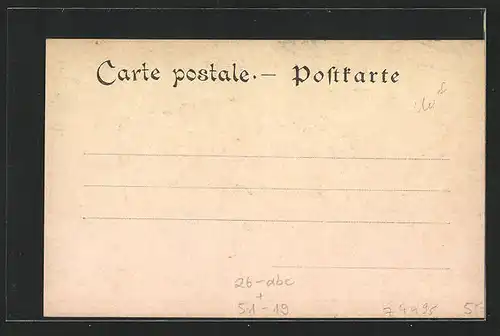 Carte postale. — Postkarte
26-abc
+
51-19